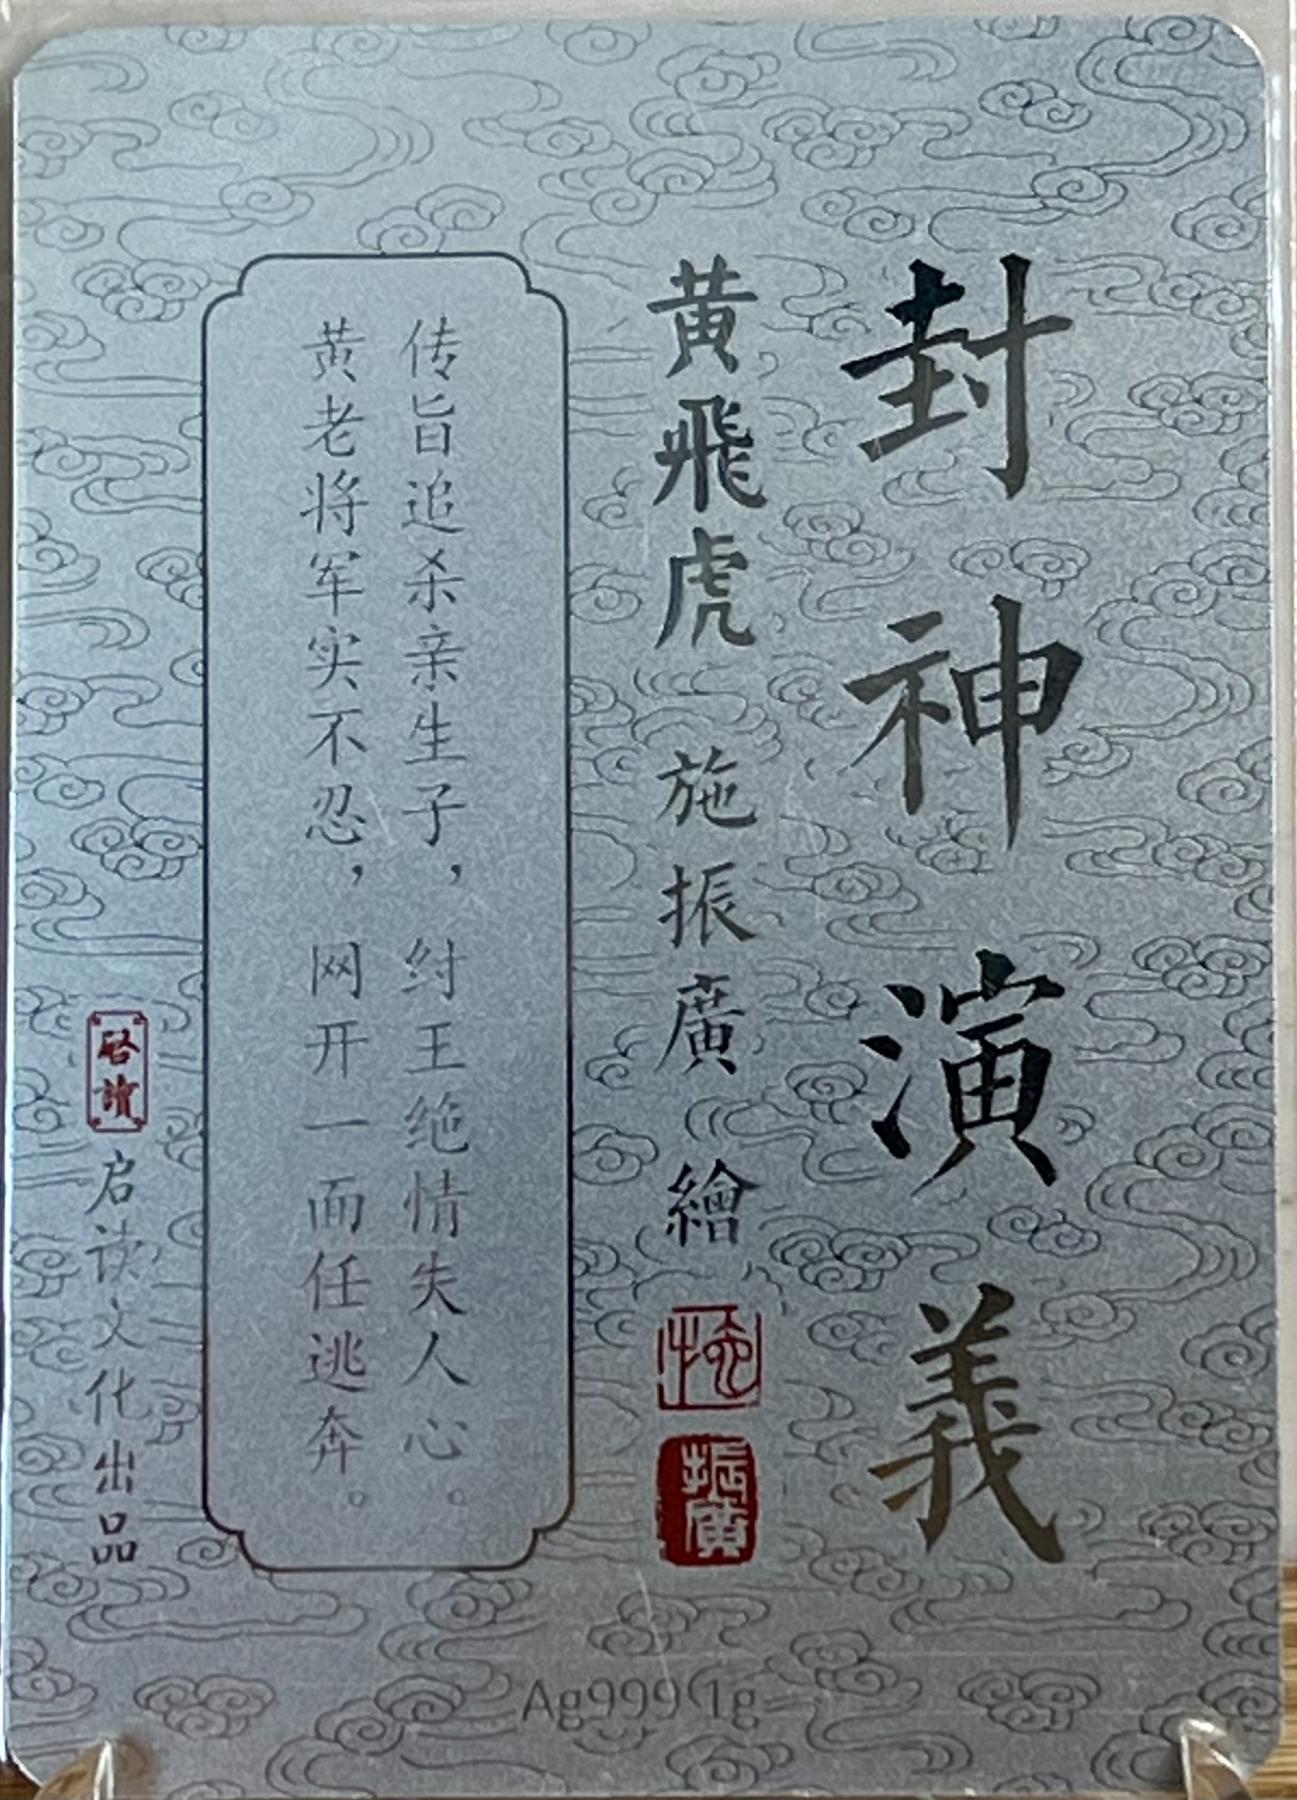 封神演義
黄飛虎 施振廣 繪
振廣
传旨追杀亲生子，纣王绝情失人心。
黄老将军实不忍，网开一面任逃奔。
啓讀
启读文化出品
Ag999 1g